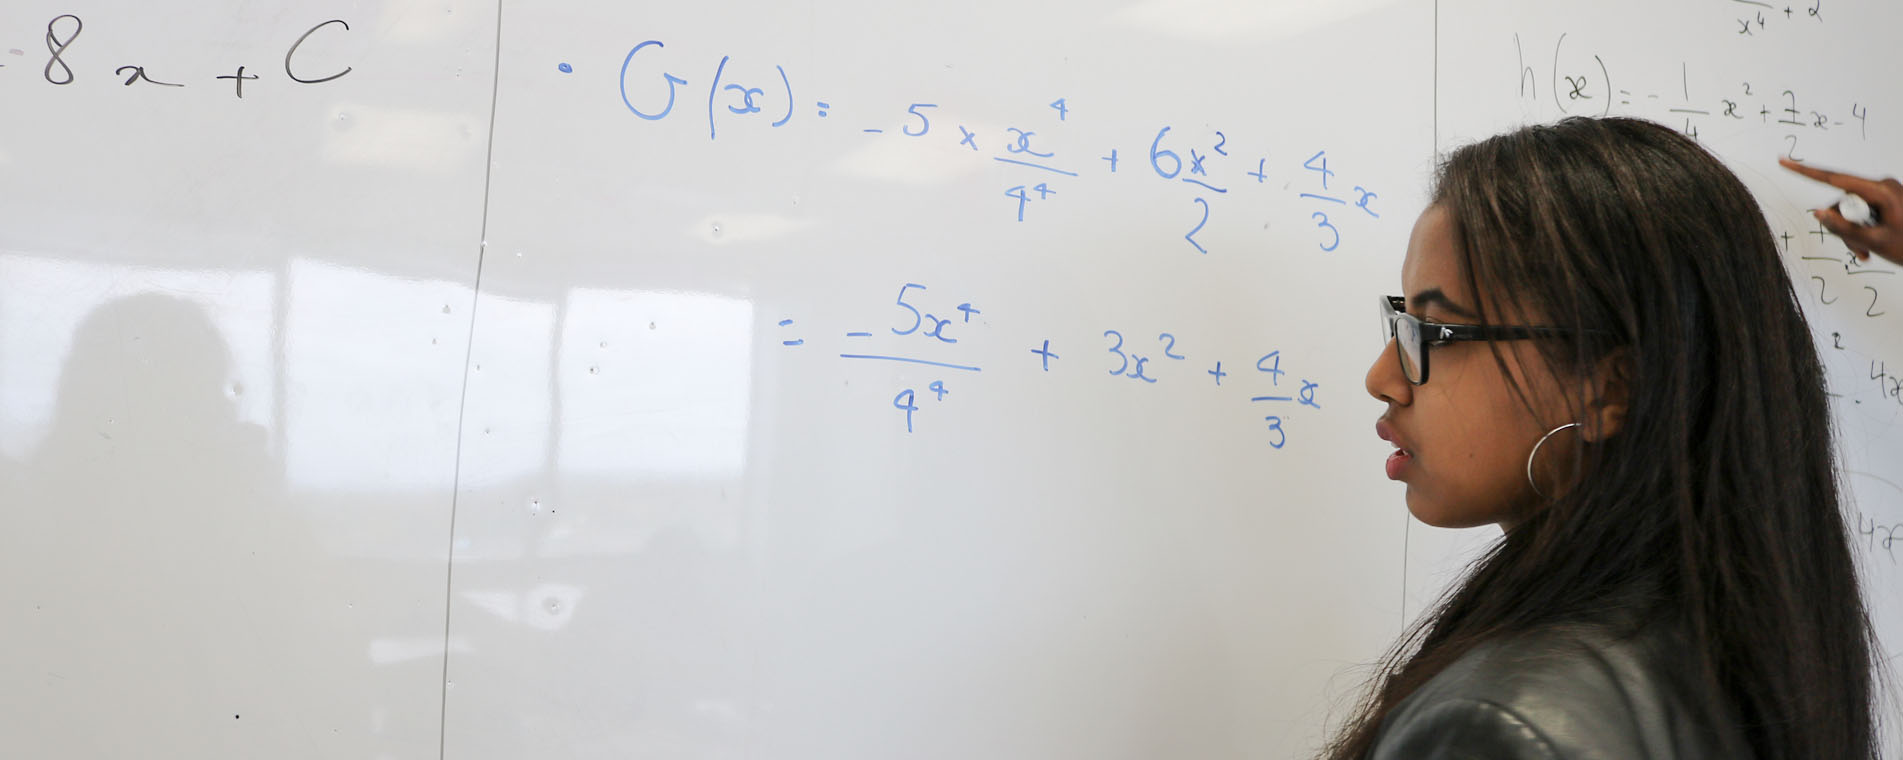 8x + C
• G(x) = -5 × x⁴/4⁴ + 6x²/2 + 4/3 x
= -5x⁴/4⁴ + 3x² + 4/3 x
x⁴ + 2
h(x) = -1/4 x² + 7/2 x - 4
+ 7/2 x²/2
4x
4x